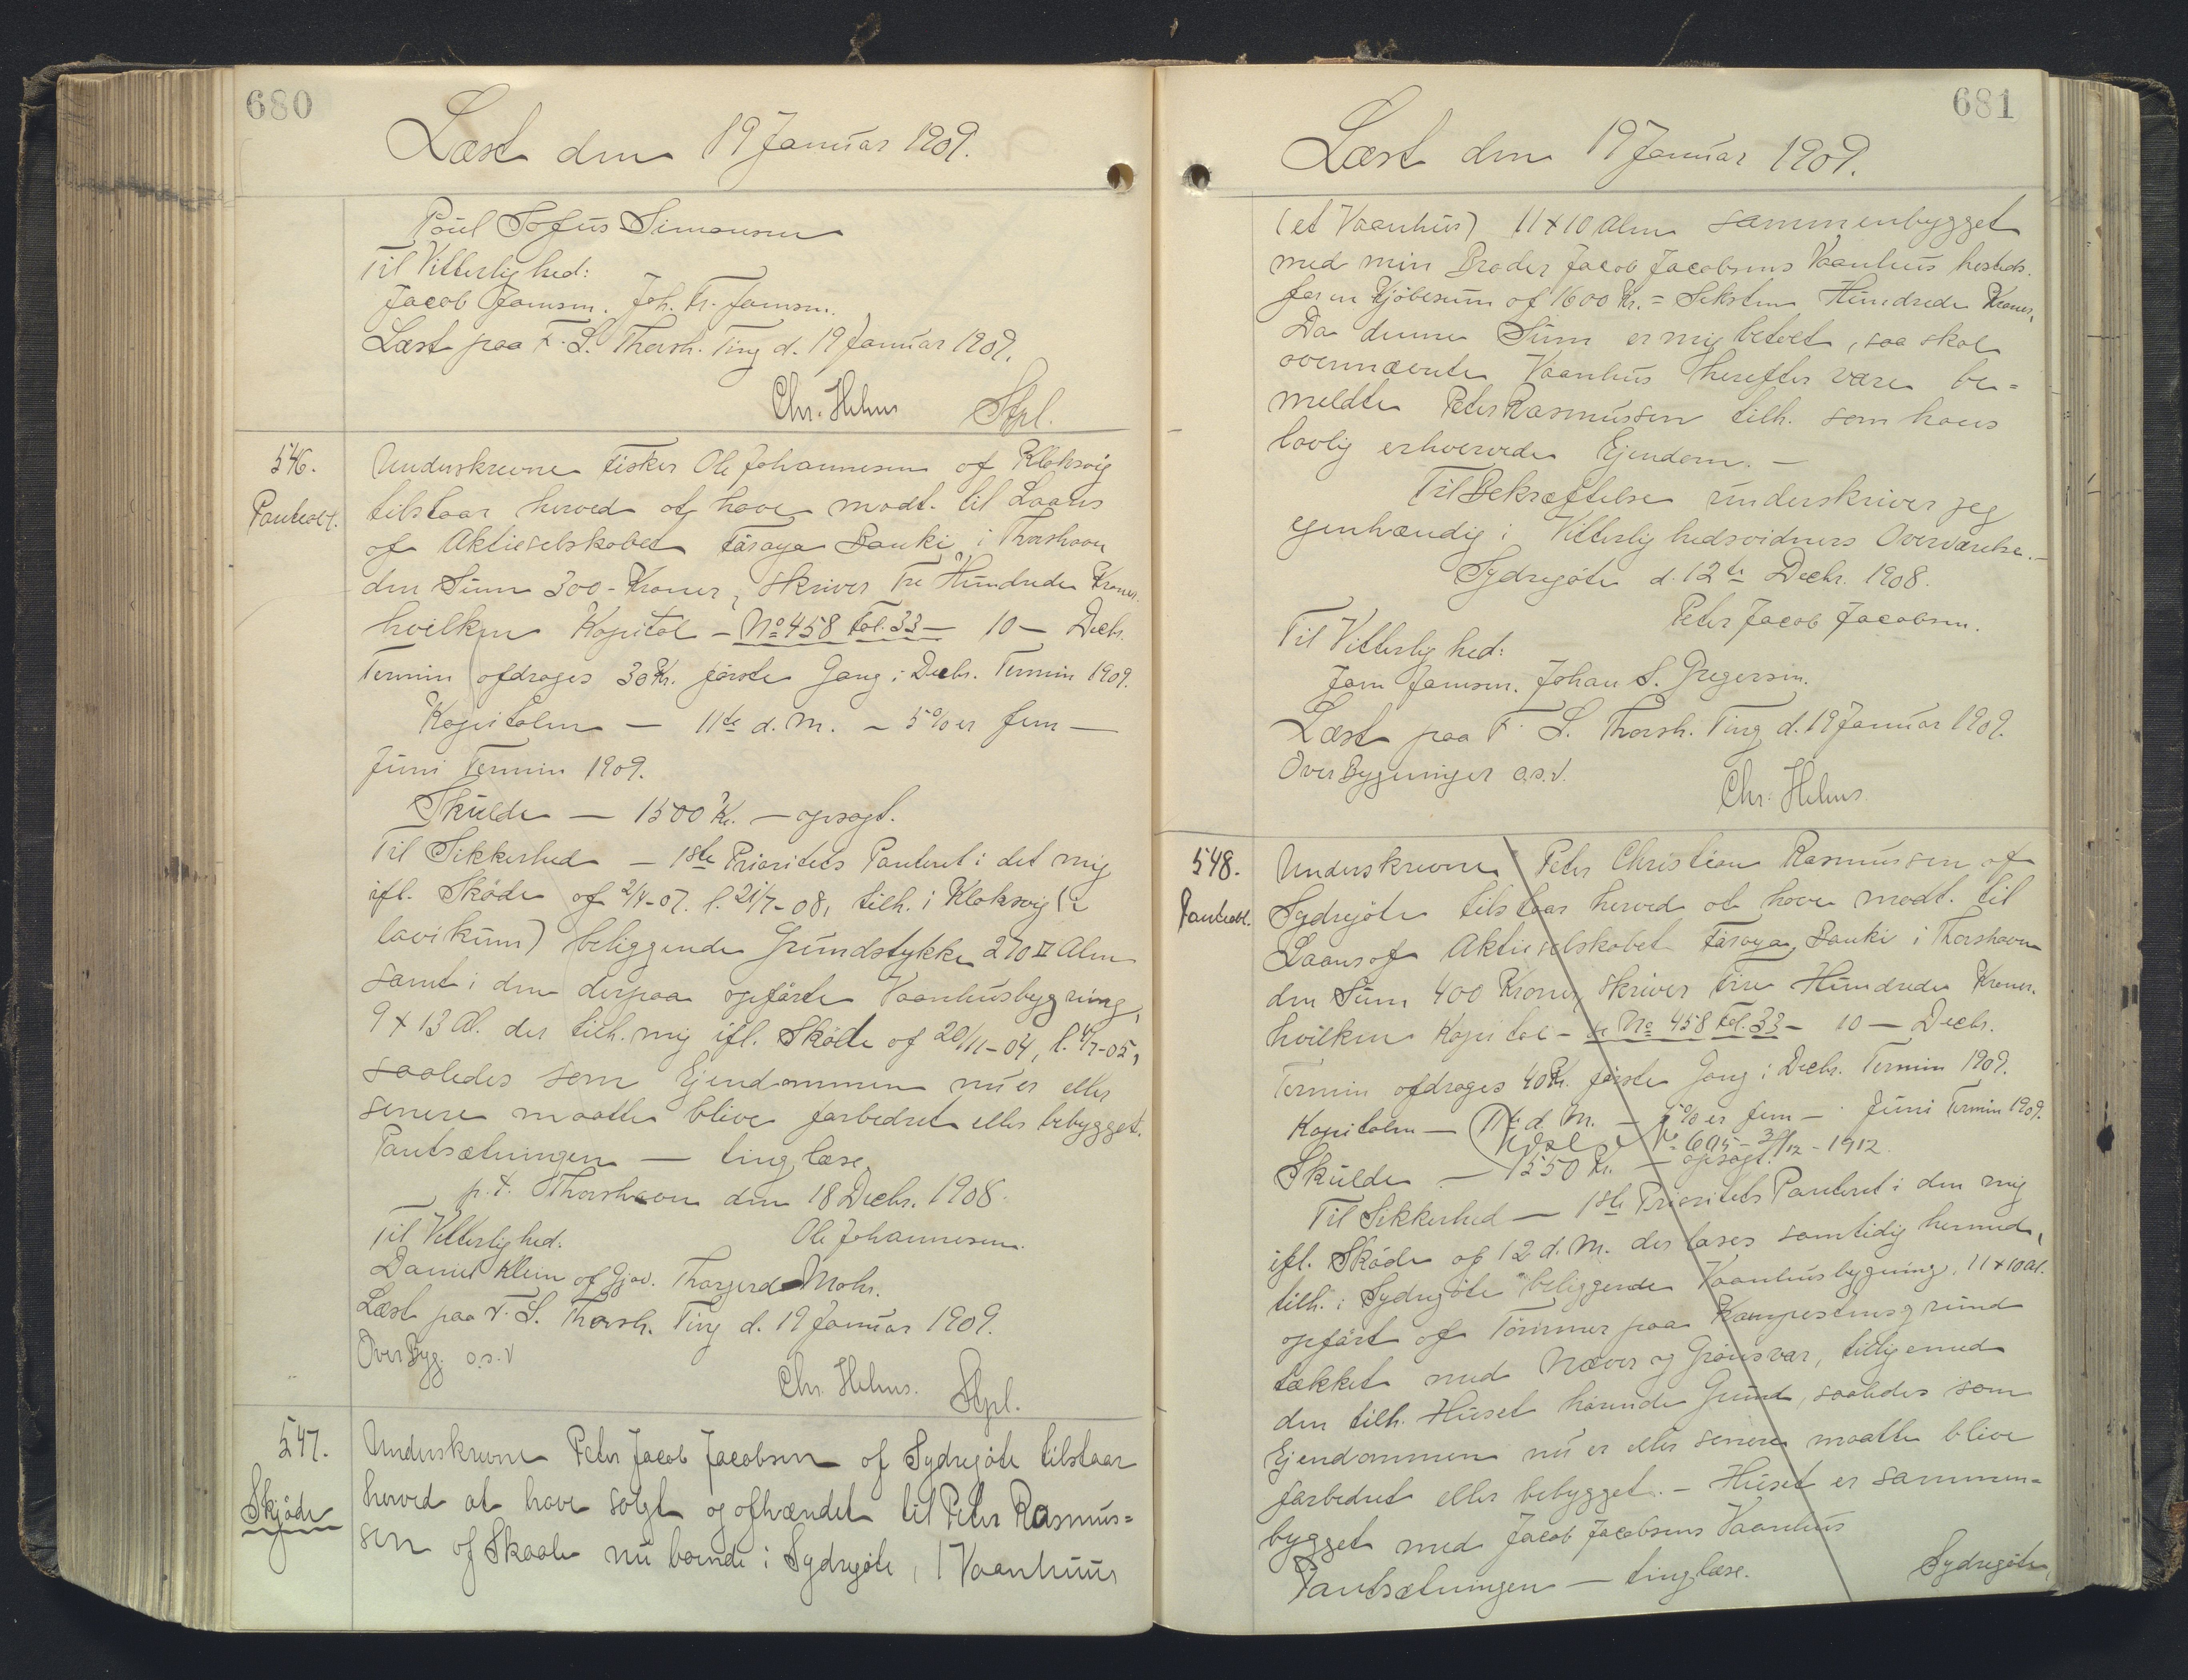 680
Læst den 19 Januar 1909.
Poul Sofus Simonsen
Til Vitterlighed:
Jacob Joensen. Joh. Fr. Joensen.
Læst paa F. S. Thorsh. Ting d. 19 Januar 1909.
Chr. Helms Stpl.
546.
Panteobl.
Underskrevne Fisker Ole Johannesen af Klaksvig
tilstaar herved at have modt. til Laans
af Aktieselskabet Føroya Banki i Thorshavn
den Sum 300 - Kroner, skriver Tre Hundrede Kroner.
hvilken Kapital - No 458 Fol. 33 - 10 - Decbr.
Termin afdrages 30 Kr. første Gang i Decbr. Termin 1909.
Kapitalen - 11te d. M. - 5% er fem -
Juni Termin 1909.
Skulde - 1500 Kr. - opsagt.
Til Sikkerhed - 1ste Prioritets Panteret i det mig
ifl. Skøde af 2/4-07. l. 21/7-08, tilh. i Klaksvig (i
lavikum) beliggende Grundstykke 270 □ Alen
samt i den derpaa opførte Vaanhusbygning,
9 x 13 Al. der tilh. mig ifl. Skøde af 20/11-04, l. 4/7-05,
saaledes som Ejendommen nu er eller
senere maatte blive forbedret eller bebygget.
Pantsætningen - tinglæse
p. t. Thorshavn den 18 Decbr. 1908.
Til Vitterlighed: Ole Johannesen.
Daniel Klein af Gjov. Thorgerd Mohr.
Læst paa F. S. Thorsh. Ting d. 19 Januar 1909.
Over Byg. o.s.v
Chr. Helms. Stpl.
547.
Skjøde
Underskrevne Peter Jacob Jacobsen af Sydregøte tilstaar
herved at have solgt og afhændet til Peter Rasmus=
sen af Skaale nu boende i Sydregøte, 1 Vaanhuus
681
Læst den 19 Januar 1909.
(et Vaanhus) 11 x 10 Alen sammenbygget
med min Broder Jacob Jacobsens Vaanhus hersteds.
for en Kjøbesum af 1600 Kr. = Seksten Hundrede Kroner.
Da denne Sum er mig betalt, saa skal
ovennævnte Vaanhus herefter være be=
meldte Peter Rasmussen tilh. som hans
lovlig erhvervede Ejendom. -
Til Bekræftelse underskriver jeg
egenhændig i Vitterlighedsvidners Overværelse. -
Sydregøte d. 12te Decbr. 1908.
Peter Jacob Jacobsen.
Til Vitterlighed:
Joen Joensen. Johan S. Gregersen.
Læst paa F. S. Thorsh. Ting d. 19 Januar 1909.
Over Bygninger o.s.v.
Chr. Helms
548.
Panteobl.
Underskrevne Peter Christian Rasmussen af
Sydregøte tilstaar herved at have modt. til
Laans af Aktieselskabet Føroya Banki i Thorshavn
den Sum 400 Kroner, skriver Fire Hundrede Kroner.
hvilken Kapital - se No 458 Fol. 33 - 10 - Decbr.
Termin afdrages 40 Kr. første Gang i Decbr. Termin 1909.
Kapitalen - 11te d. M. - 5% er fem - Juni Termin 1909.
Udsl. No 695 - 31/12 - 1912.
Skulde - 1550 Kr. - opsagt.
Til Sikkerhed - 1ste Prioritets Panteret i den mig
ifl. Skøde af 12 d. M. der læses samtidig hermed,
tilh. i Sydregøte beliggende Vaanhusbygning, 11 x 10 Al.
opført af Tømmer paa Kampestensgrund
tækket med Næver og Grønsvær, tilligemed
den tilh. Huset hørende Grund, saaledes som
Ejendommen nu er eller senere maatte blive
forbedret eller bebygget. - Huset er sammen=
bygget med Jacob Jacobsens Vaanhus
Pantsætningen - tinglæse. Sydregøte,